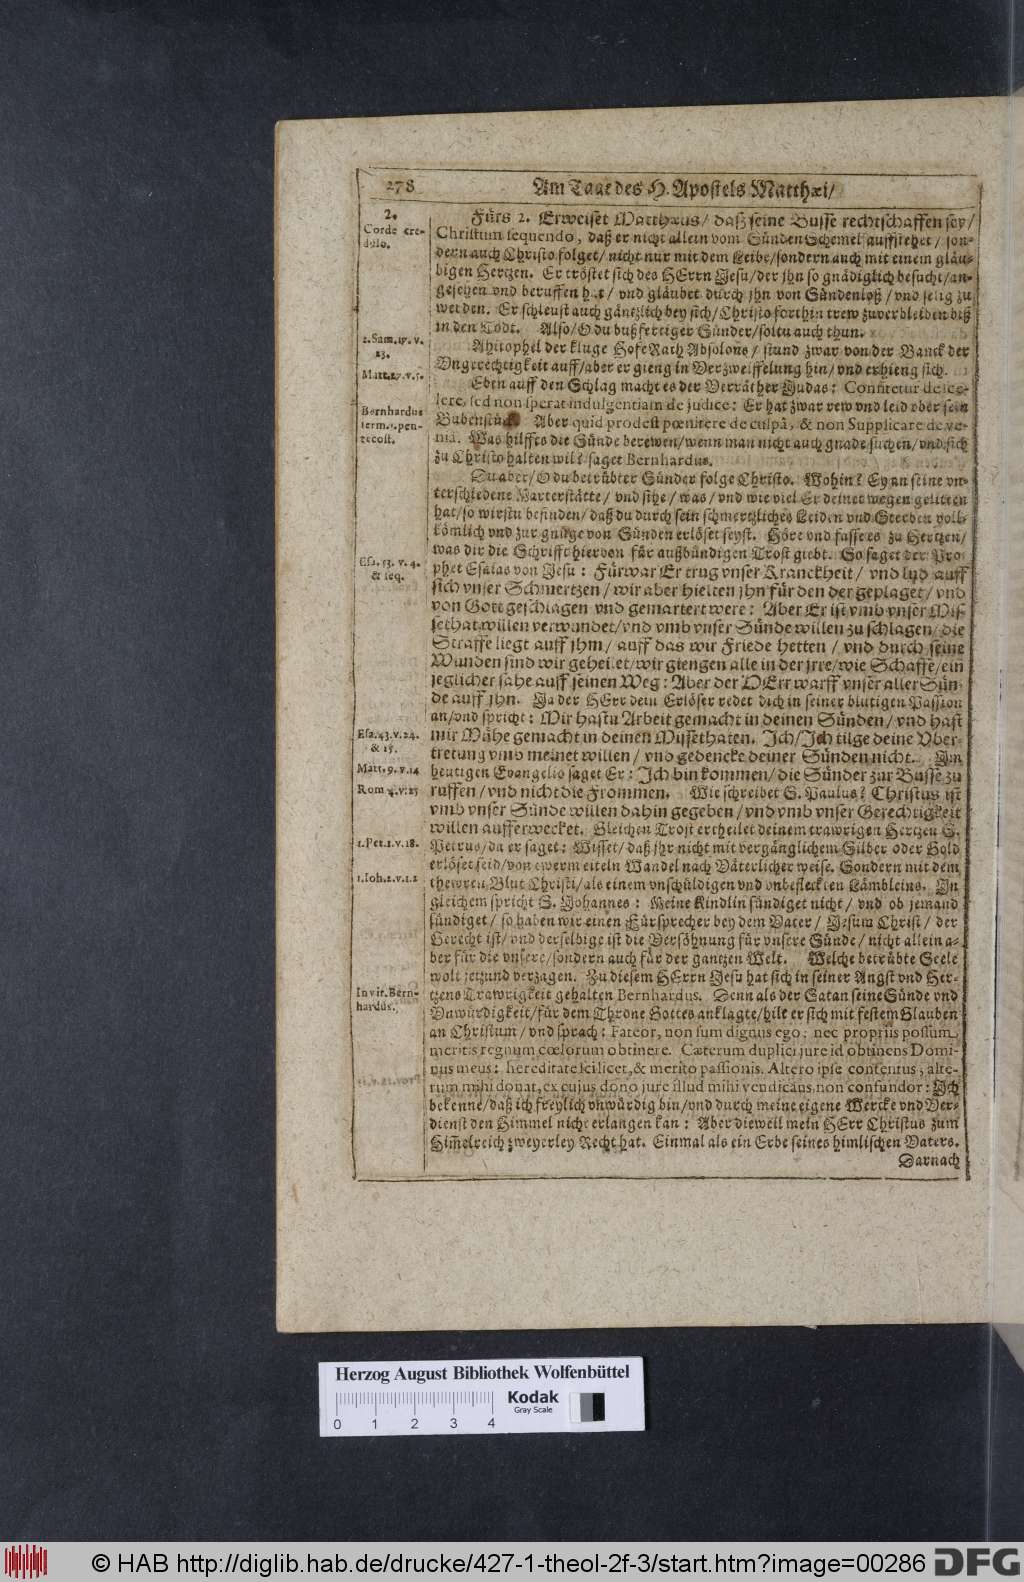 278 Am Tage des H. Apostels Matthæi/
2.
Corde credulo.
Fürs 2. Erweiset Matthæus/ daß seine Busse rechtschaffen sey/
Christum sequendo, daß er nicht allein vom Sünden Schemel auffstehet/ son-
dern auch Christo folget/ nicht nur mit dem Leibe/ sondern auch mit einem gläu-
bigen Hertzen. Er tröstet sich des HErrn Jesu/ der jhn so gnädiglich besucht/ an-
gesehen vnd beruffen hat/ vnd gläubet durch jhn von Sünden loß/ vnd selig zu
werden. Er schleust auch gäntzlich bey sich/ Christo forthin trew zuverbleiben biß
in den Todt. Also/ O du bußfertiger Sünder/ soltu auch thun.
2. Sam. 17. v.
23.
Ahitophel der kluge Hofe Rath Absolons/ stund zwar von der Banck der
Vngerechtigkeit auff/ aber er gieng in Verzweiffelung hin/ vnd erhieng sich.
Matt. 27. v. 5.
Eben auff den Schlag macht es der Verräther Judas: Confitetur de sce-
lere, sed non sperat indulgentiam de judice: Er hat zwar rew vnd leid vber sein
Bernhardus
serm. 1. pen-
tecost.
Bubenstück. Aber quid prodest pœnitere de culpâ, & non Supplicare de ve-
niâ. Was hilfft es die Sünde berewen/ wenn man nicht auch gnade suchen/ vnd sich
zu Christo halten wil? saget Bernhardus.
Du aber/ O du betrübter Sünder folge Christo. Wohin? Ey an seine vn-
terschiedene Marterstätte/ vnd sihe/ was/ vnd wie viel Er deinet wegen gelitten
hat/ so wirstu befinden/ daß du durch sein schmertzliches Leiden vnd Sterben voll-
kömlich vnd zur gnüge von Sünden erlöset seyst. Höre vnd fasse es zu Hertzen/
was dir die Schrifft hiervon für außbündigen Trost giebt. So saget der Pro-
Esa. 53. v. 4.
& seq.
phet Esaias von Jesu: Fürwar Er trug vnser Kranckheit/ vnd lud auff
sich vnser Schmertzen/ wir aber hielten jhn für den der geplaget/ vnd
von Gott geschlagen vnd gemartert were: Aber Er ist vmb vnser Mis-
sethat willen verwundet/ vnd vmb vnser Sünde willen zu schlagen/ die
Straffe liegt auff jhm/ auff das wir Friede hetten/ vnd durch seine
Wunden sind wir geheilet/ wir giengen alle in der jrre/ wie Schaffe/ ein
jeglicher sahe auff seinen Weg: Aber der HErr warff vnser aller Sün-
de auff jhn. Ja der HErr dein Erlöser redet dich in seiner blutigen Passion
an/ vnd spricht: Mir hastu Arbeit gemacht in deinen Sünden/ vnd hast
Esa. 43. v. 24.
& 25.
mir Mühe gemacht in deinen Missethaten. Ich/ Ich tilge deine Vber-
tretung vmb meinet willen/ vnd gedencke deiner Sünden nicht. Im
Matt. 9. v. 14
heutigen Evangelio saget Er: Ich bin kommen/ die Sünder zur Busse zu
Rom 4. v. 25
ruffen/ vnd nicht die Frommen. Wie schreibet S. Paulus? Christus ist
vmb vnser Sünde willen dahin gegeben/ vnd vmb vnser Gerechtigkeit
willen aufferwecket. Gleichen Trost ertheilet deinem trawrigen Hertzen S.
1. Pet. 1. v. 18.
Petrus/ da er saget: Wisset/ daß jhr nicht mit vergänglichem Silber oder Gold
erlöset seid/ von ewerm eiteln Wandel nach Väterlicher weise. Sondern mit dem
1. Joh. 2. v. 1. 2
thewren Blut Christi/ als einem vnschüldigen vnd vnbefleckten Lämbleins. In
gleichem spricht S. Johannes: Meine Kindlin sündiget nicht/ vnd ob jemand
sündiget/ so haben wir einen Fürsprecher bey dem Vater/ Jesum Christ/ der
Gerecht ist/ vnd derselbige ist die Versöhnung für vnsere Sünde/ nicht allein a-
ber für die vnsere/ sondern auch für der gantzen Welt. Welche betrübte Seele
wolt jetzund verzagen. Zu diesem HErrn Jesu hat sich in seiner Angst vnd Her-
In vit. Bern-
hardus.
tzens Trawrigkeit gehalten Bernhardus. Denn als der Satan seine Sünde vnd
Vnwürdigkeit/ für dem Throne Gottes anklagte/ hilt er sich mit festem Glauben
an Christum/ vnd sprach: Fateor, non sum dignus ego; nec propriis possum
meritis regnum cœlorum obtinere. Cæterum duplici jure id obtinens Domi-
nus meus: hereditate scilicet, & merito passionis. Altero ipse contentus, alte-
rum mihi donat, ex cujus dono jure illud mihi vendicâns, non confundor: Ich
bekenne/ daß ich freylich vnwürdig bin/ vnd durch meine eigene Wercke vnd Ver-
dienst den Himmel nicht erlangen kan: Aber dieweil mein HErr Christus zum
Him̃elreich zweyerley Recht hat. Einmal als ein Erbe seines himlischen Vaters.
Darnach
Herzog August Bibliothek Wolfenbüttel
Kodak
Gray Scale
0 1 2 3 4
© HAB http://diglib.hab.de/drucke/427-1-theol-2f-3/start.htm?image=00286 DFG